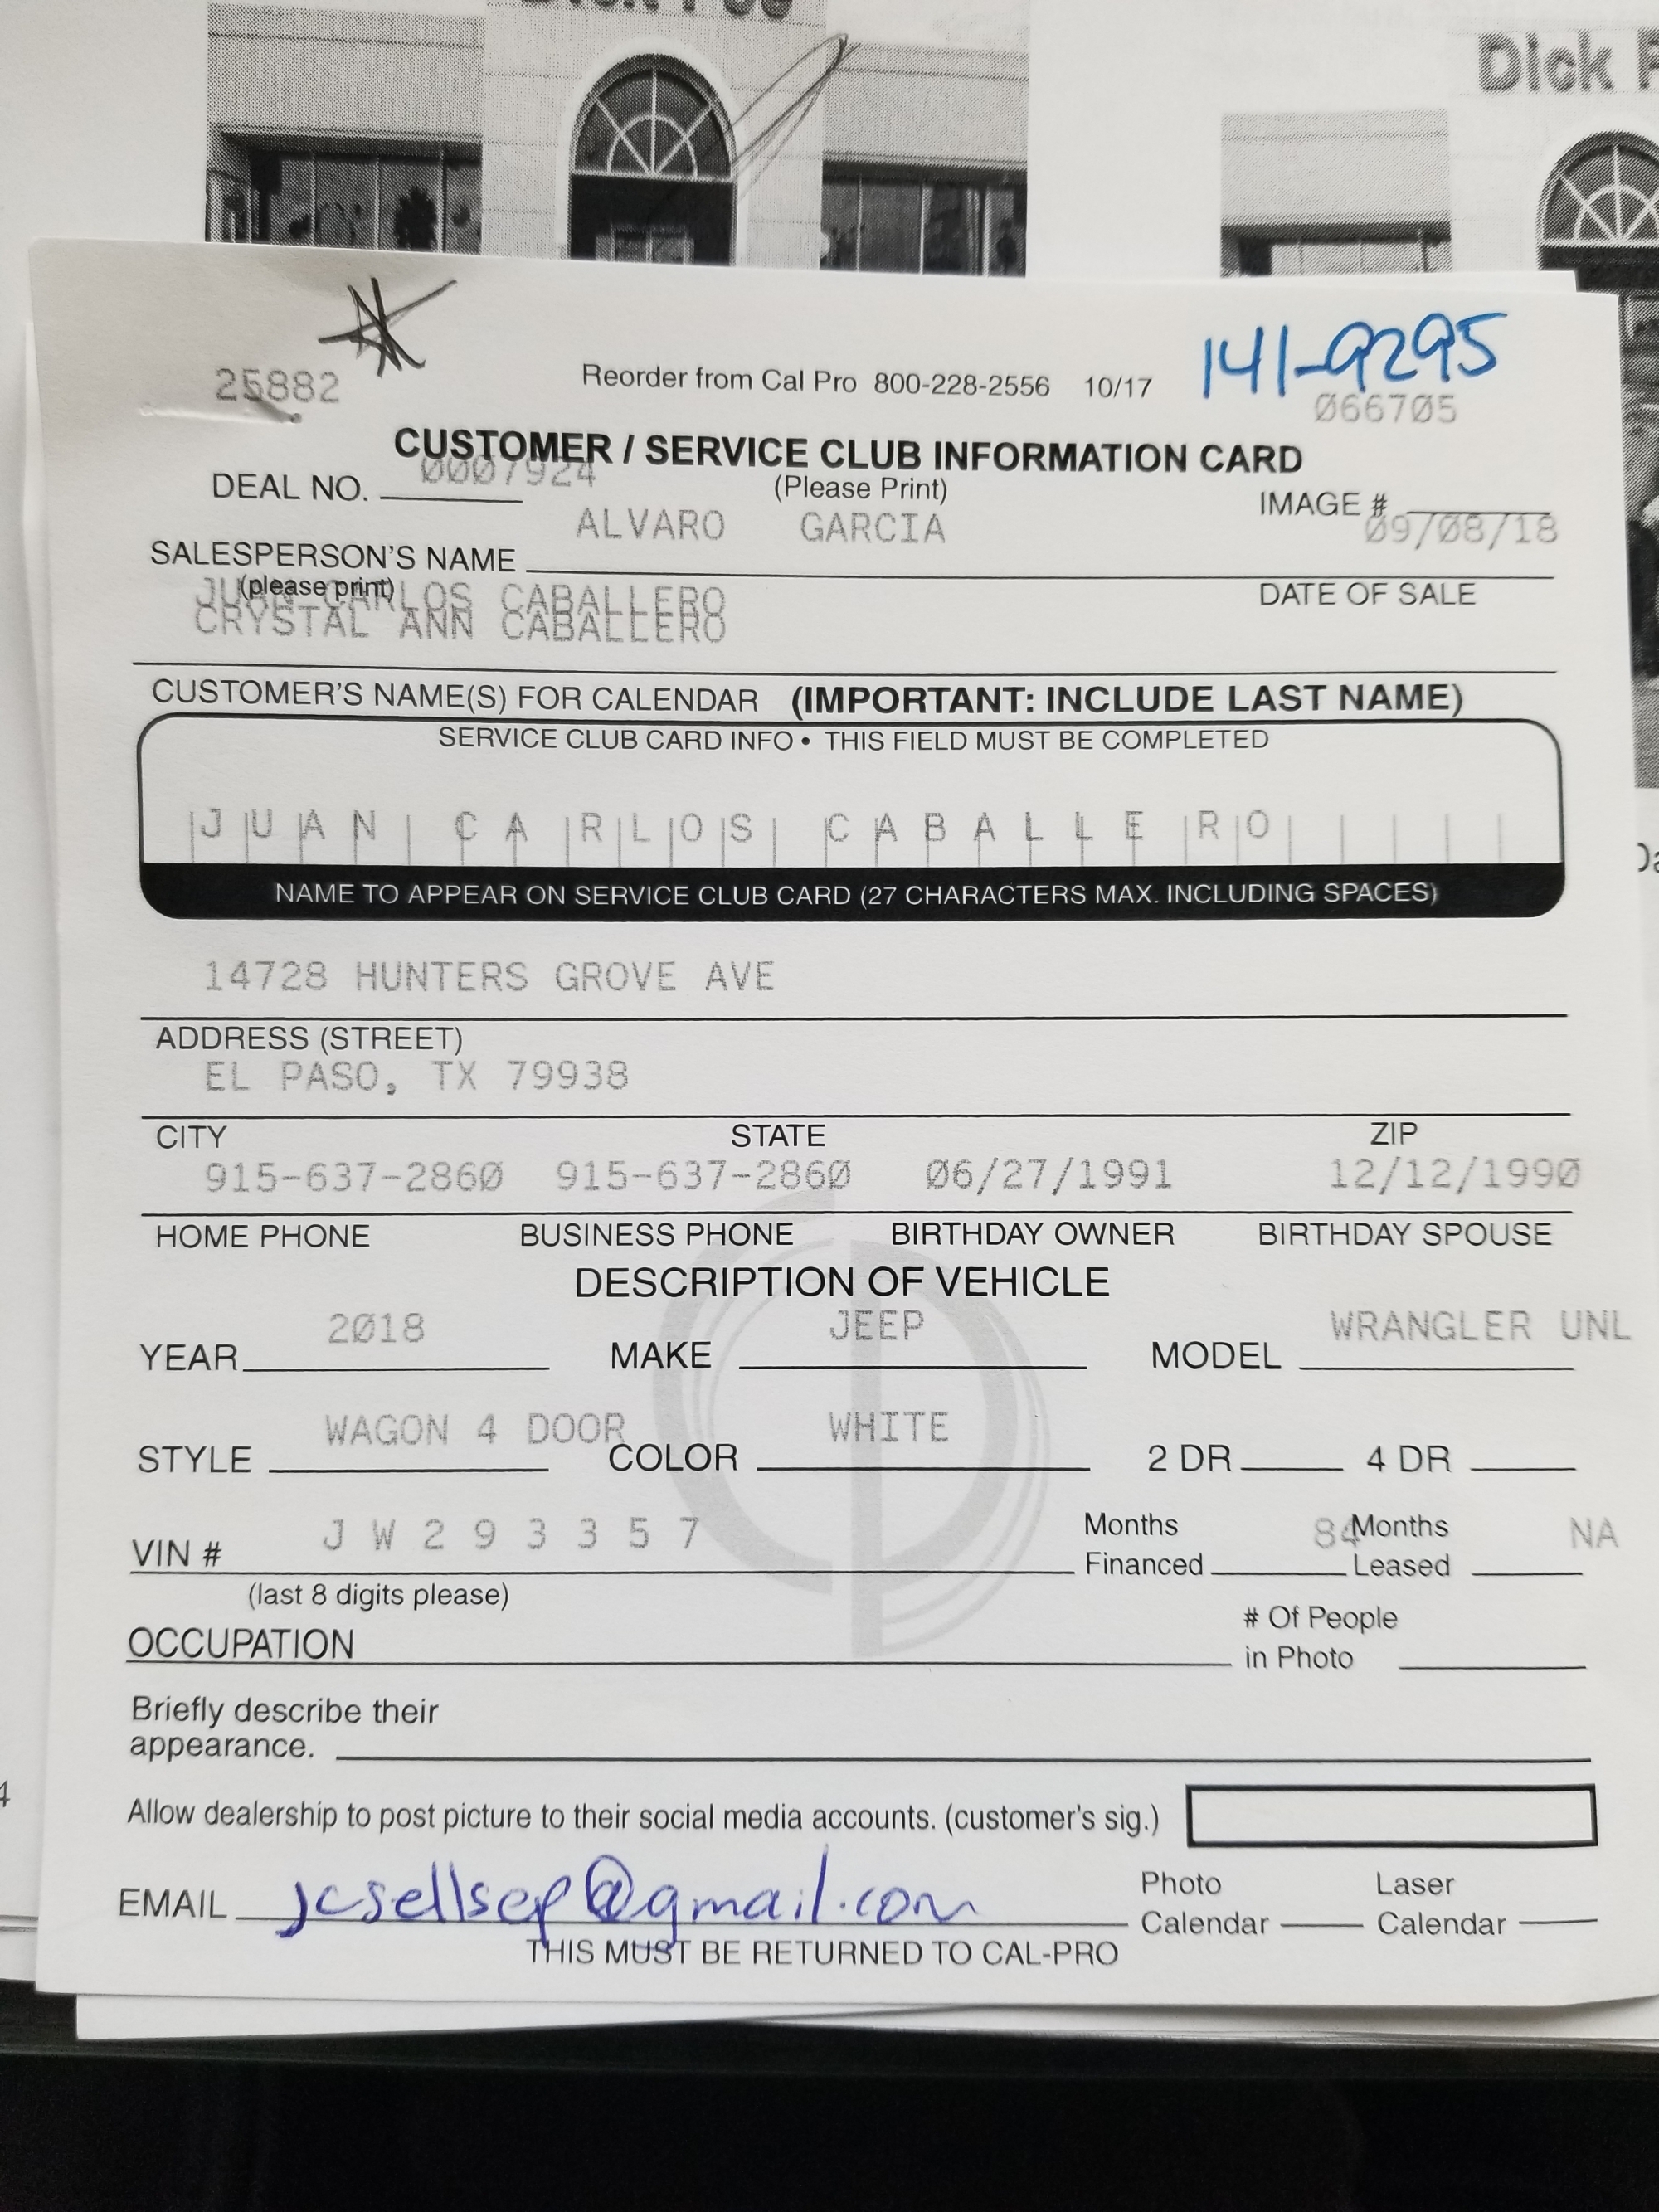 Dick F
25882
Reorder from Cal Pro 800-228-2556 10/17
141-9295
066705
CUSTOMER / SERVICE CLUB INFORMATION CARD
DEAL NO. 0007924
(Please Print)
IMAGE #
SALESPERSON'S NAME ALVARO GARCIA
09/08/18
(please print)
DATE OF SALE
JUAN CARLOS CABALLERO
CRYSTAL ANN CABALLERO
CUSTOMER'S NAME(S) FOR CALENDAR (IMPORTANT: INCLUDE LAST NAME)
SERVICE CLUB CARD INFO • THIS FIELD MUST BE COMPLETED
JUAN CARLOS CABALLERO
NAME TO APPEAR ON SERVICE CLUB CARD (27 CHARACTERS MAX. INCLUDING SPACES)
14728 HUNTERS GROVE AVE
ADDRESS (STREET)
EL PASO, TX 79938
CITY STATE ZIP
915-637-2860 915-637-2860 06/27/1991 12/12/1990
HOME PHONE BUSINESS PHONE BIRTHDAY OWNER BIRTHDAY SPOUSE
DESCRIPTION OF VEHICLE
YEAR 2018 MAKE JEEP MODEL WRANGLER UNL
STYLE WAGON 4 DOOR COLOR WHITE 2 DR 4 DR
VIN # J W 2 9 3 3 5 7 Months Financed 84 Months Leased NA
(last 8 digits please)
OCCUPATION # Of People in Photo
Briefly describe their
appearance.
Allow dealership to post picture to their social media accounts. (customer's sig.)
EMAIL jcsellsep@gmail.com Photo Calendar Laser Calendar
THIS MUST BE RETURNED TO CAL-PRO